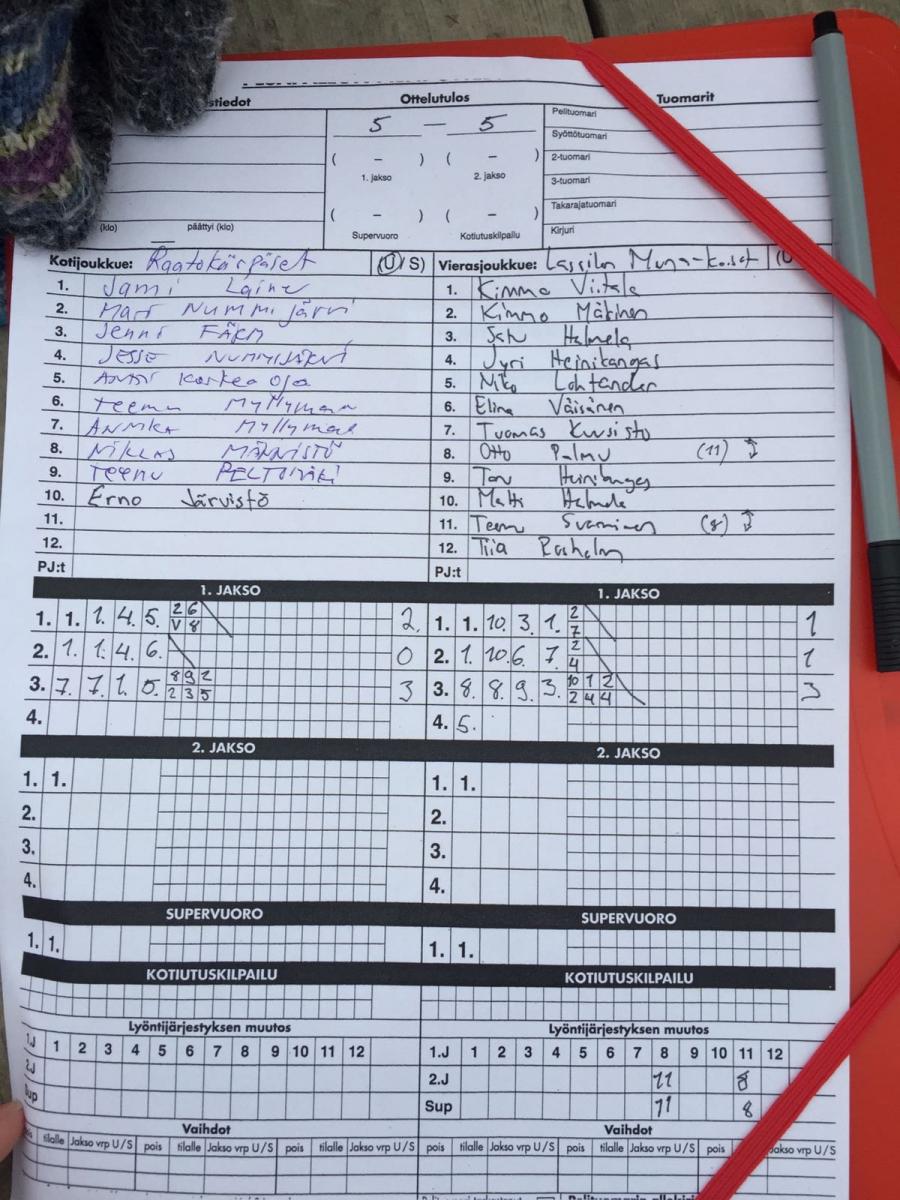 stiedot Ottelutulos Tuomarit
5 — 5
Pelituomari
Syöttötuomari
( – ) ( – )
2-tuomari
1. jakso 2. jakso
3-tuomari
( – ) ( – )
Takarajatuomari
(klo) päättyi (klo)
Supervuoro Kotiutuskilpailu
Kirjuri
Kotijoukkue: Raatokärpäset (U/S) Vierasjoukkue: Lassilan (U
1. Jami Laine 1. Kimmo Viitala
2. Mari Nummijärvi 2. Kimmo Mäkinen
3. Jenni FÄRM 3. Satu Halmela
4. JESSE NUMMIJÄRVI 4. Jyri Heinikangas
5. Anssi Koskeoja 5. Niko Lohtander
6. Teemu Myllymaa 6. Elina Väisänen
7. ANNIKA Myllymaa 7. Tuomas Kuusisto
8. NIKLAS MÄNNISTÖ 8. Otto Palmu (11)
9. TEEMU 9. Heinikangas
10. Erno Järvistö 10. Matti Halmela
11. 11. Teemu (8)
12. 12. Tiia
PJ:t PJ:t
1. JAKSO 1. JAKSO
1. 1. 1. 4. 5. 2 6 2. 1. 1. 10. 3. 1. 2 1
V 8 7
2. 1. 1. 4. 6. 0 2. 1. 10. 6. 7. 2 1
4
3. 7. 7. 1. 5. 8 9 2 3 3. 8. 8. 9. 3. 10 1 2 3
2 3 5 2 4 4
4. 4. 5.
2. JAKSO 2. JAKSO
1. 1. 1. 1.
2. 2.
3. 3.
4. 4.
SUPERVUORO SUPERVUORO
1. 1. 1. 1.
KOTIUTUSKILPAILU KOTIUTUSKILPAILU
Lyöntijärjestyksen muutos Lyöntijärjestyksen muutos
1.J 1 2 3 4 5 6 7 8 9 10 11 12 1.J 1 2 3 4 5 6 7 8 9 10 11 12
2.J 2.J 11 8
Sup Sup 11 8
Vaihdot Vaihdot
tilalle Jakso vrp U/S pois tilalle Jakso vrp U/S pois tilalle Jakso vrp U/S pois tilalle Jakso vrp U/S pois tilalle Jakso vrp U/S pois Jakso vrp U/S